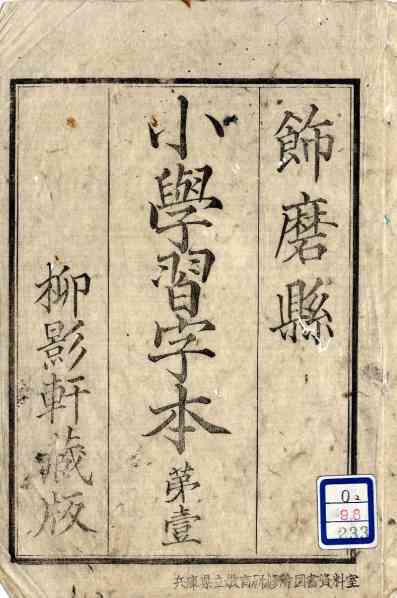 飾磨縣
小學習字本 第壹
柳影軒藏版
O2
9.8
233
兵庫県立教育研修所図書資料室